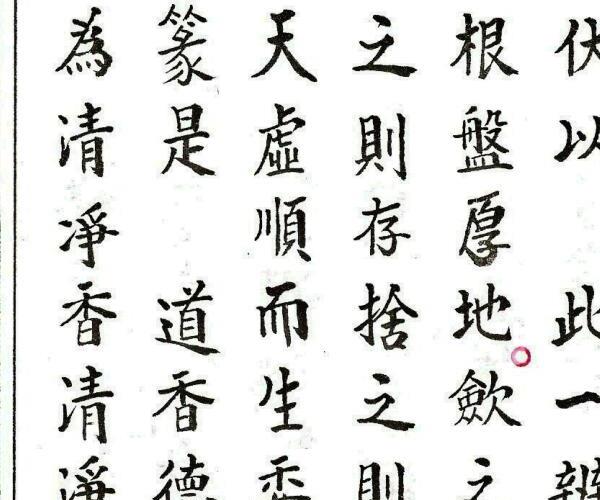 伏以 此一
根盤厚地歛之
之則存捨之則
天虛順而生
篆是 道香德
為清凈香清淨